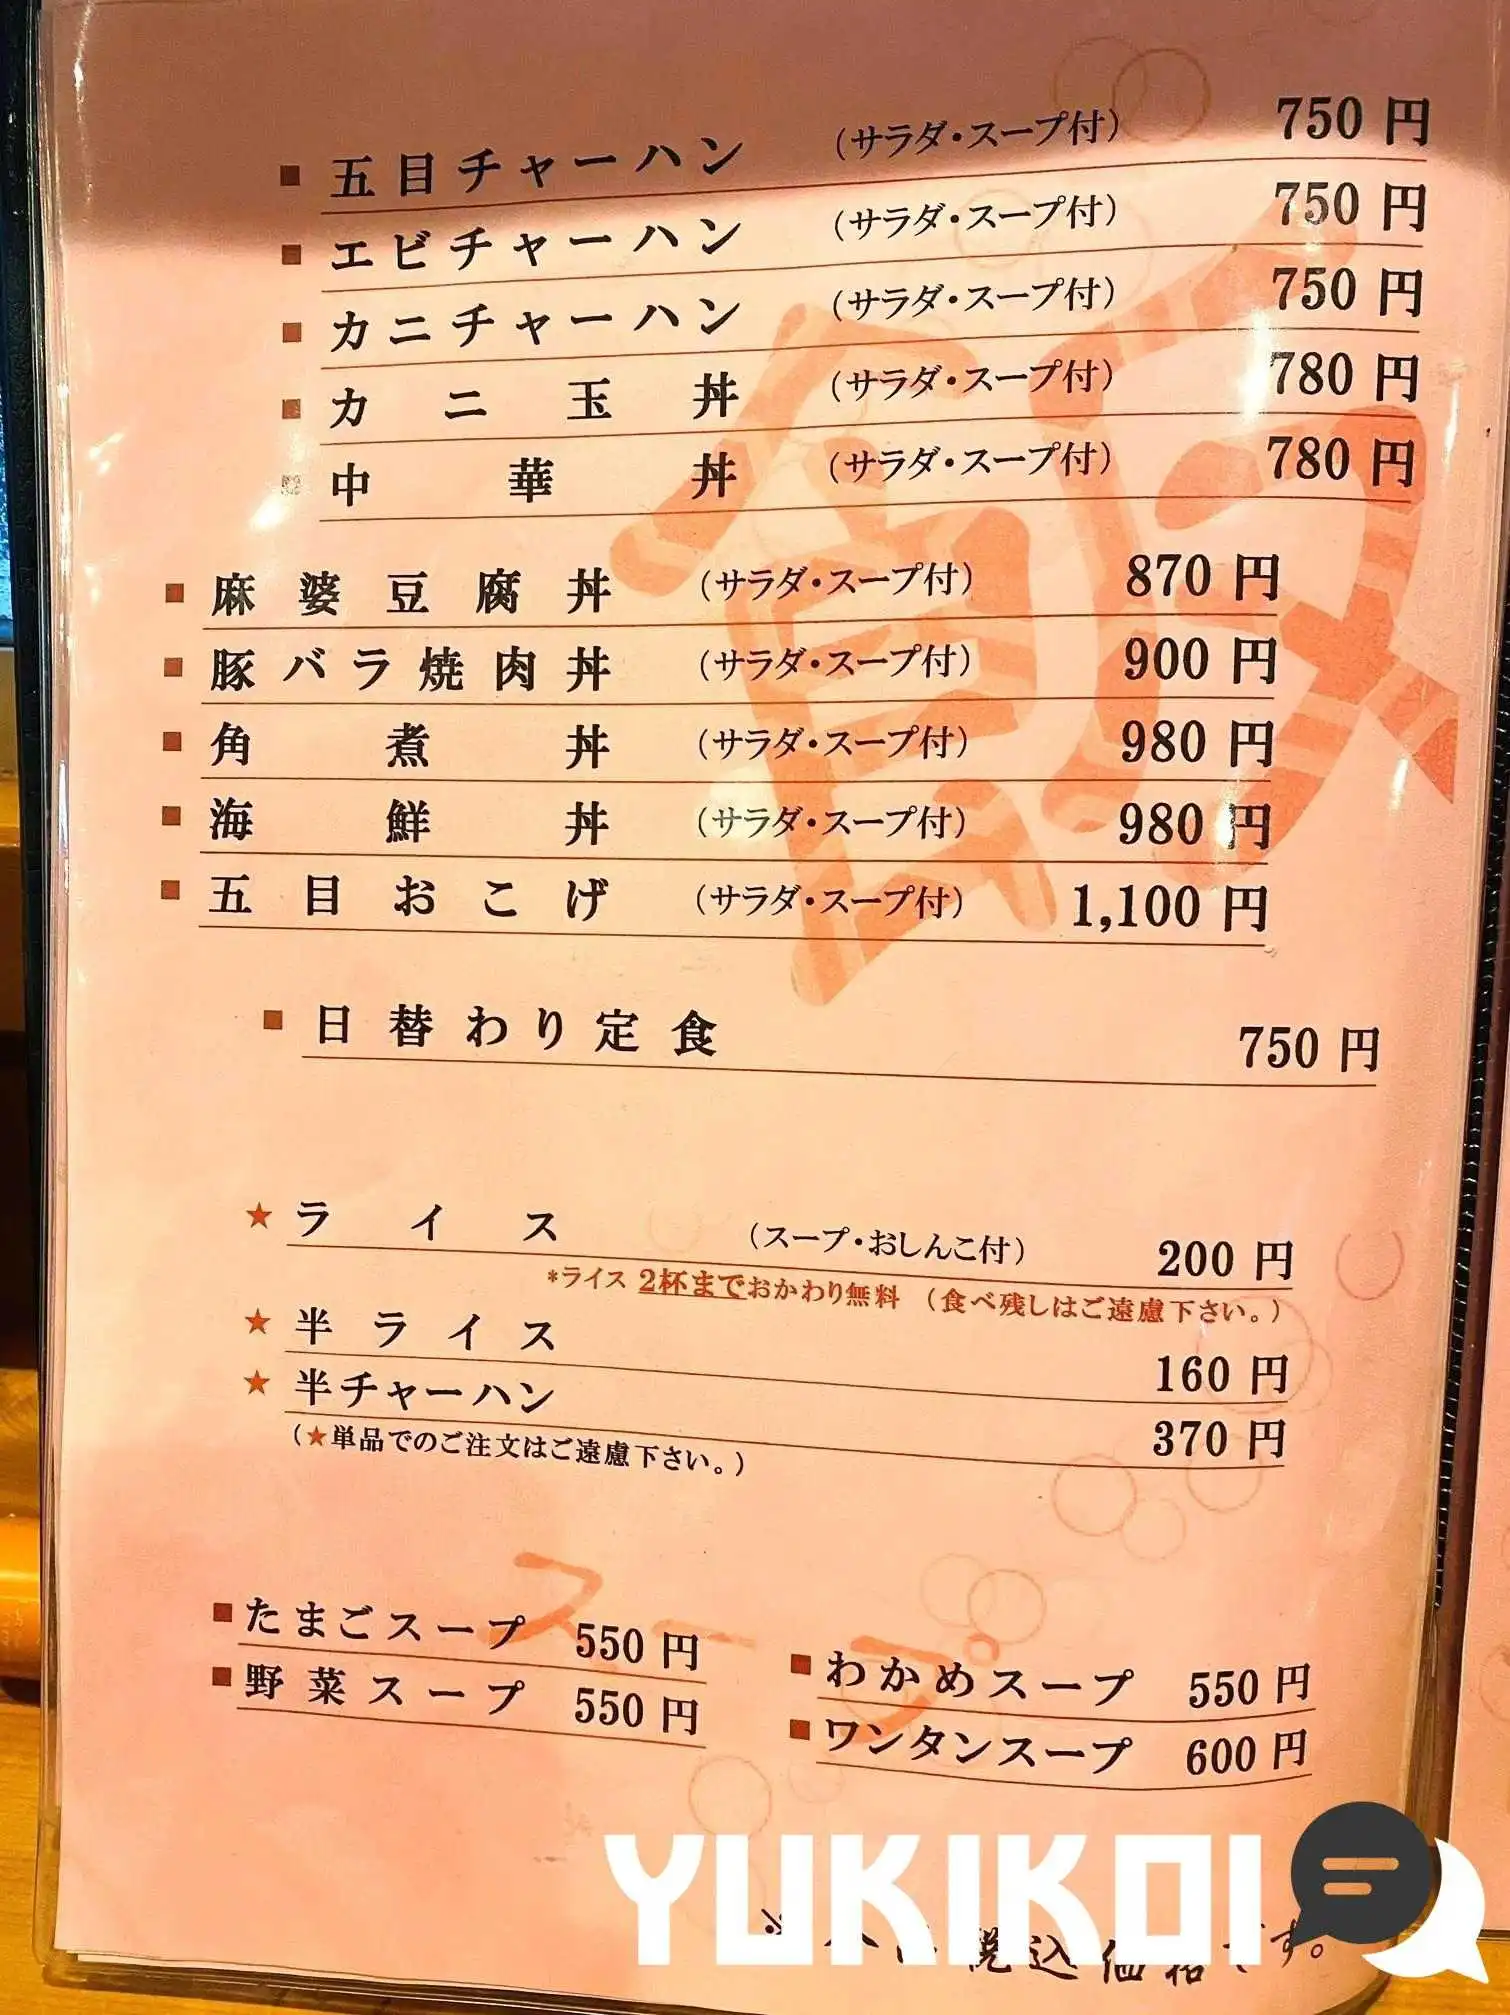 ■ 五目チャーハン (サラダ・スープ付) 750 円
■ エビチャーハン (サラダ・スープ付) 750 円
■ カニチャーハン (サラダ・スープ付) 750 円
■ カニ玉丼 (サラダ・スープ付) 780 円
■ 中華丼 (サラダ・スープ付) 780 円
飯
■ 麻婆豆腐丼 (サラダ・スープ付) 870 円
■ 豚バラ焼肉丼 (サラダ・スープ付) 900 円
■ 角煮丼 (サラダ・スープ付) 980 円
■ 海鮮丼 (サラダ・スープ付) 980 円
■ 五目おこげ (サラダ・スープ付) 1,100 円
■ 日替わり定食 750 円
★ ライス (スープ・おしんこ付) 200 円
*ライス 2杯までおかわり無料 (食べ残しはご遠慮下さい。)
★ 半ライス 160 円
★ 半チャーハン 370 円
(★単品でのご注文はご遠慮下さい。)
スープ
■ たまごスープ 550 円
■ 野菜スープ 550 円
■ わかめスープ 550 円
■ ワンタンスープ 600 円
YUKIKOI
※ 税込価格です。